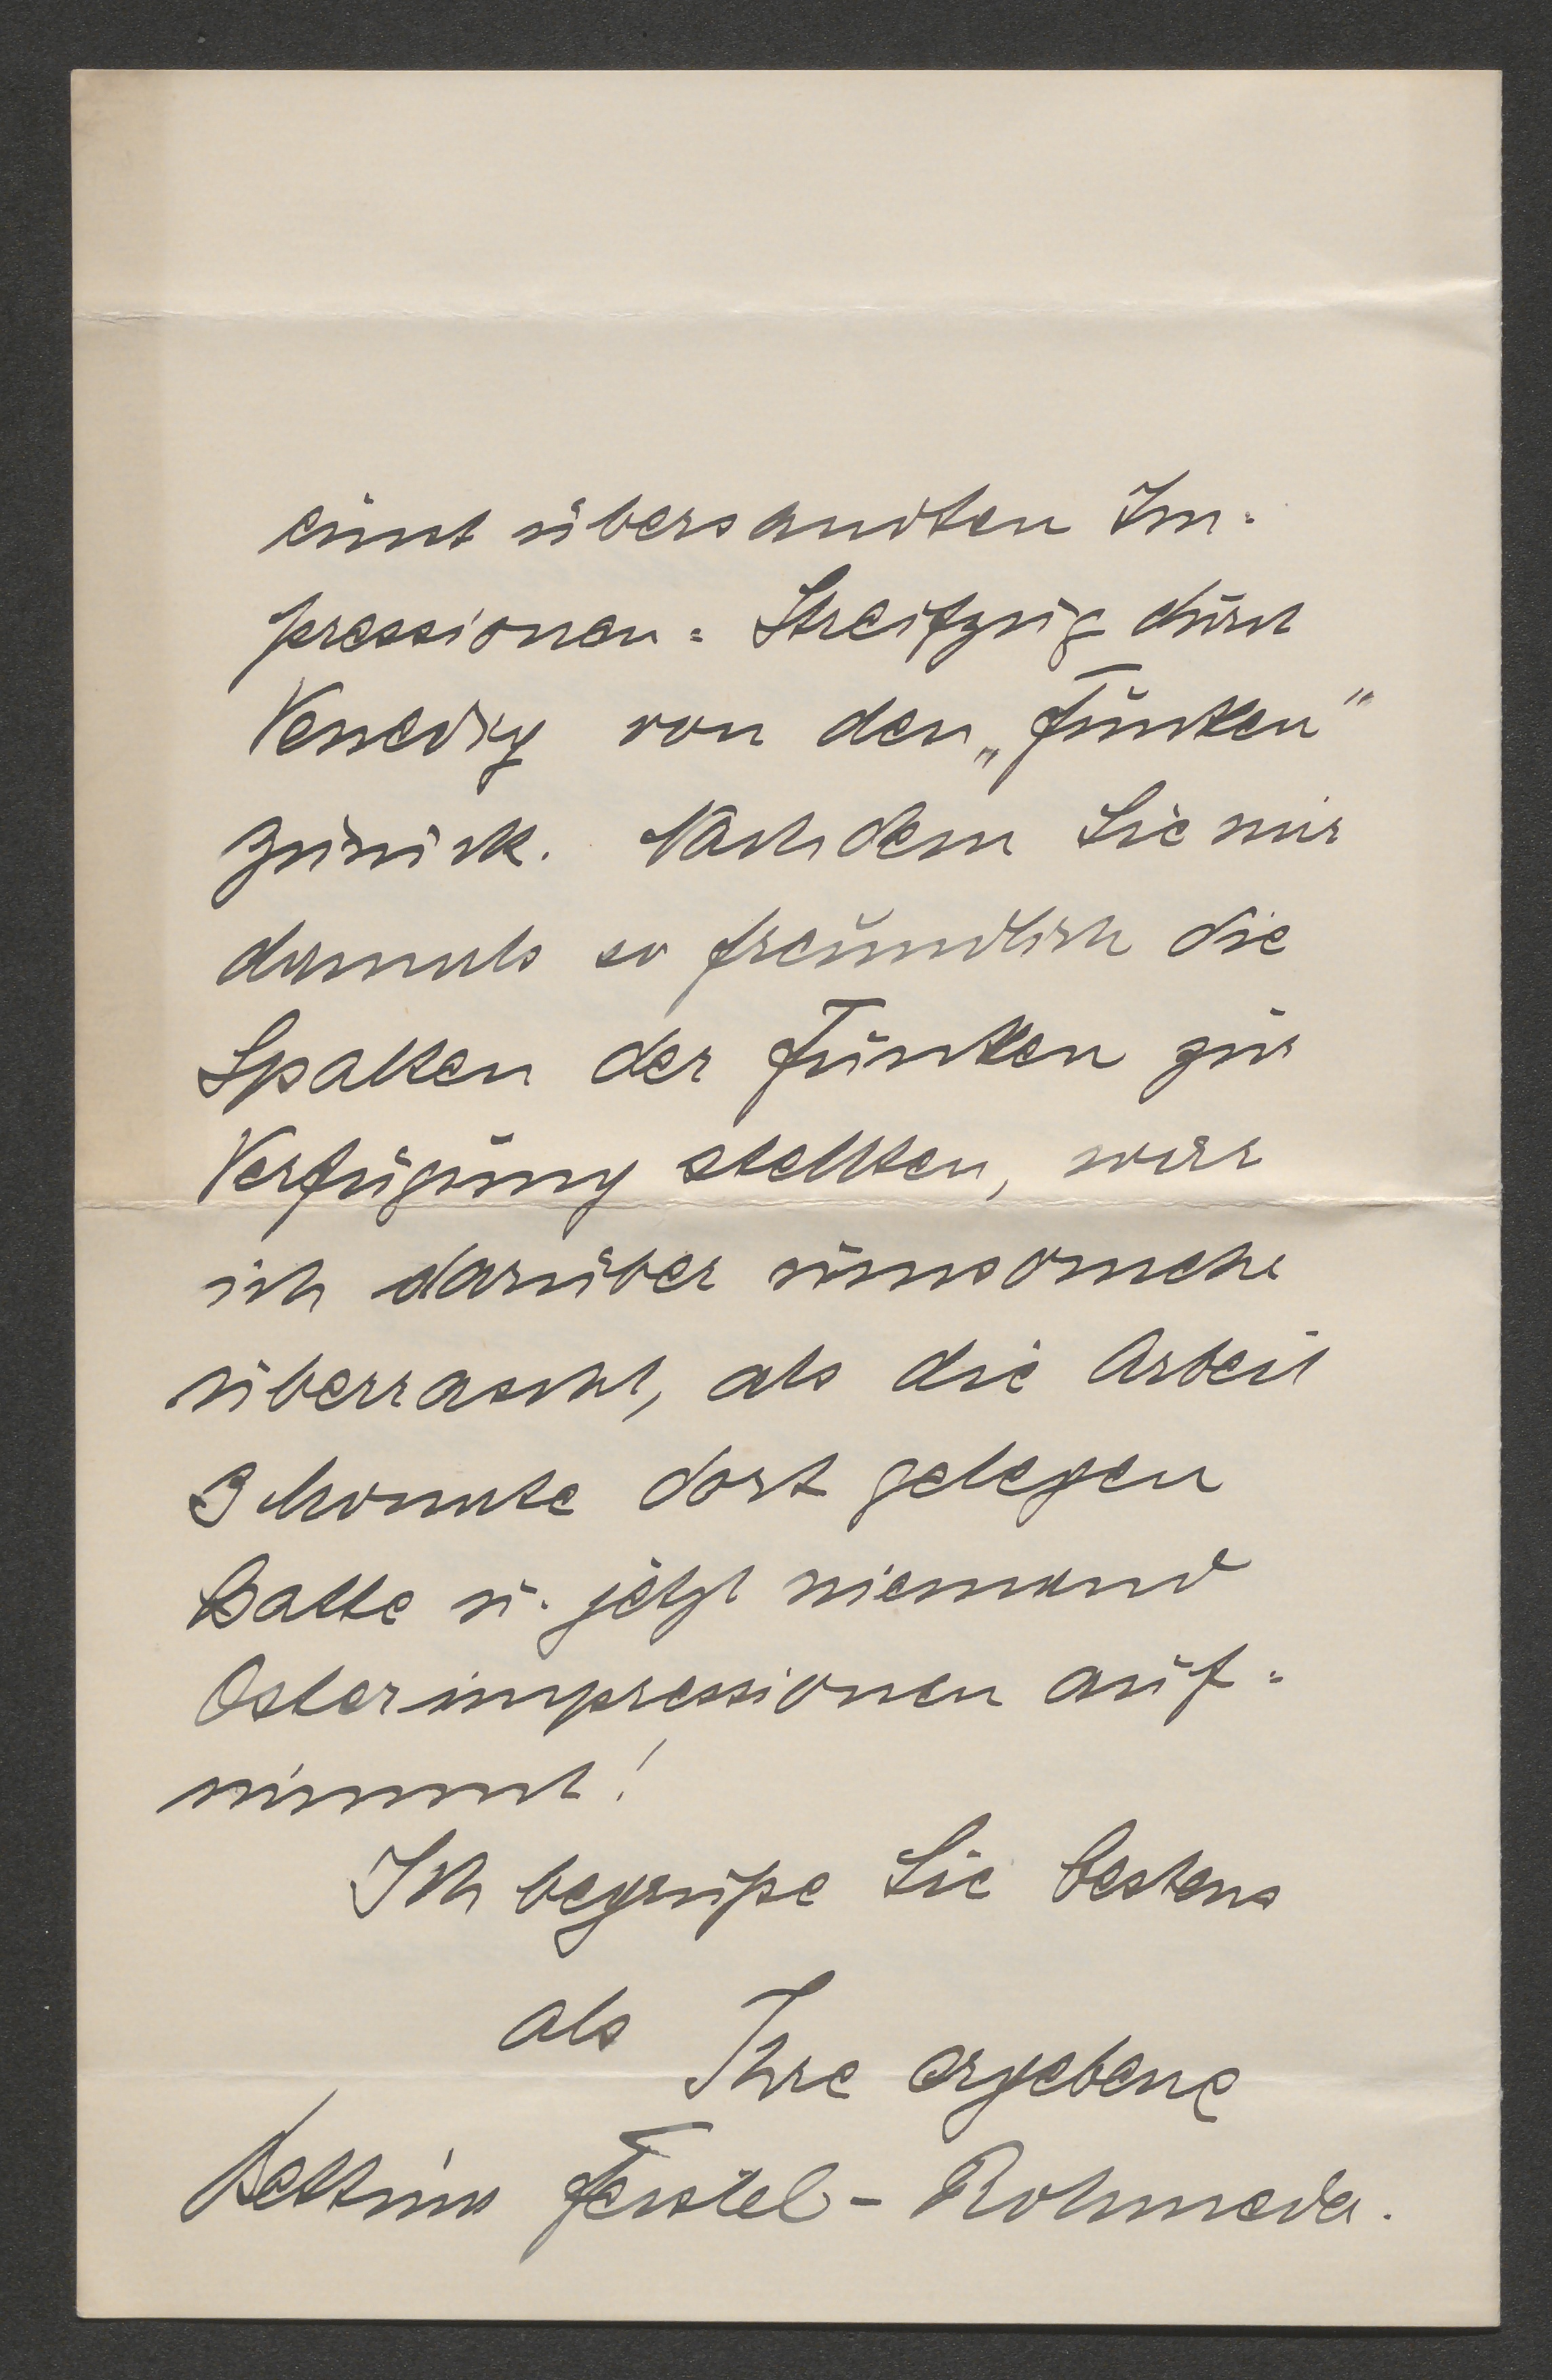 einst übersandten Im-
pressionen: Streifzug durch
Venedig von den „Funken"
zurück. Nachdem Sie mir
damals so freundlich die
Spalten der Funken zur
Verfügung stellten, war
ich darüber umsomehr
überrascht, als die Arbeit
3 Monate dort gelegen
hatte u. jetzt niemand
Osterimpressionen auf-
nimmt!
Ich begrüße Sie bestens
als
Ihre ergebene
Bettina Feistel-Rohmeder.